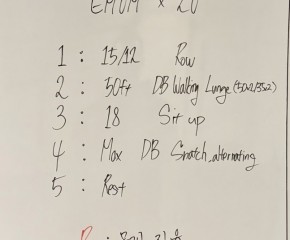 EMOM x 20
1 : 15/12 Row
2 : 50ft DB Walking Lunge (50x2/35x2)
3 : 18 Sit up
4 : Max DB Snatch, alternating
5 : Rest